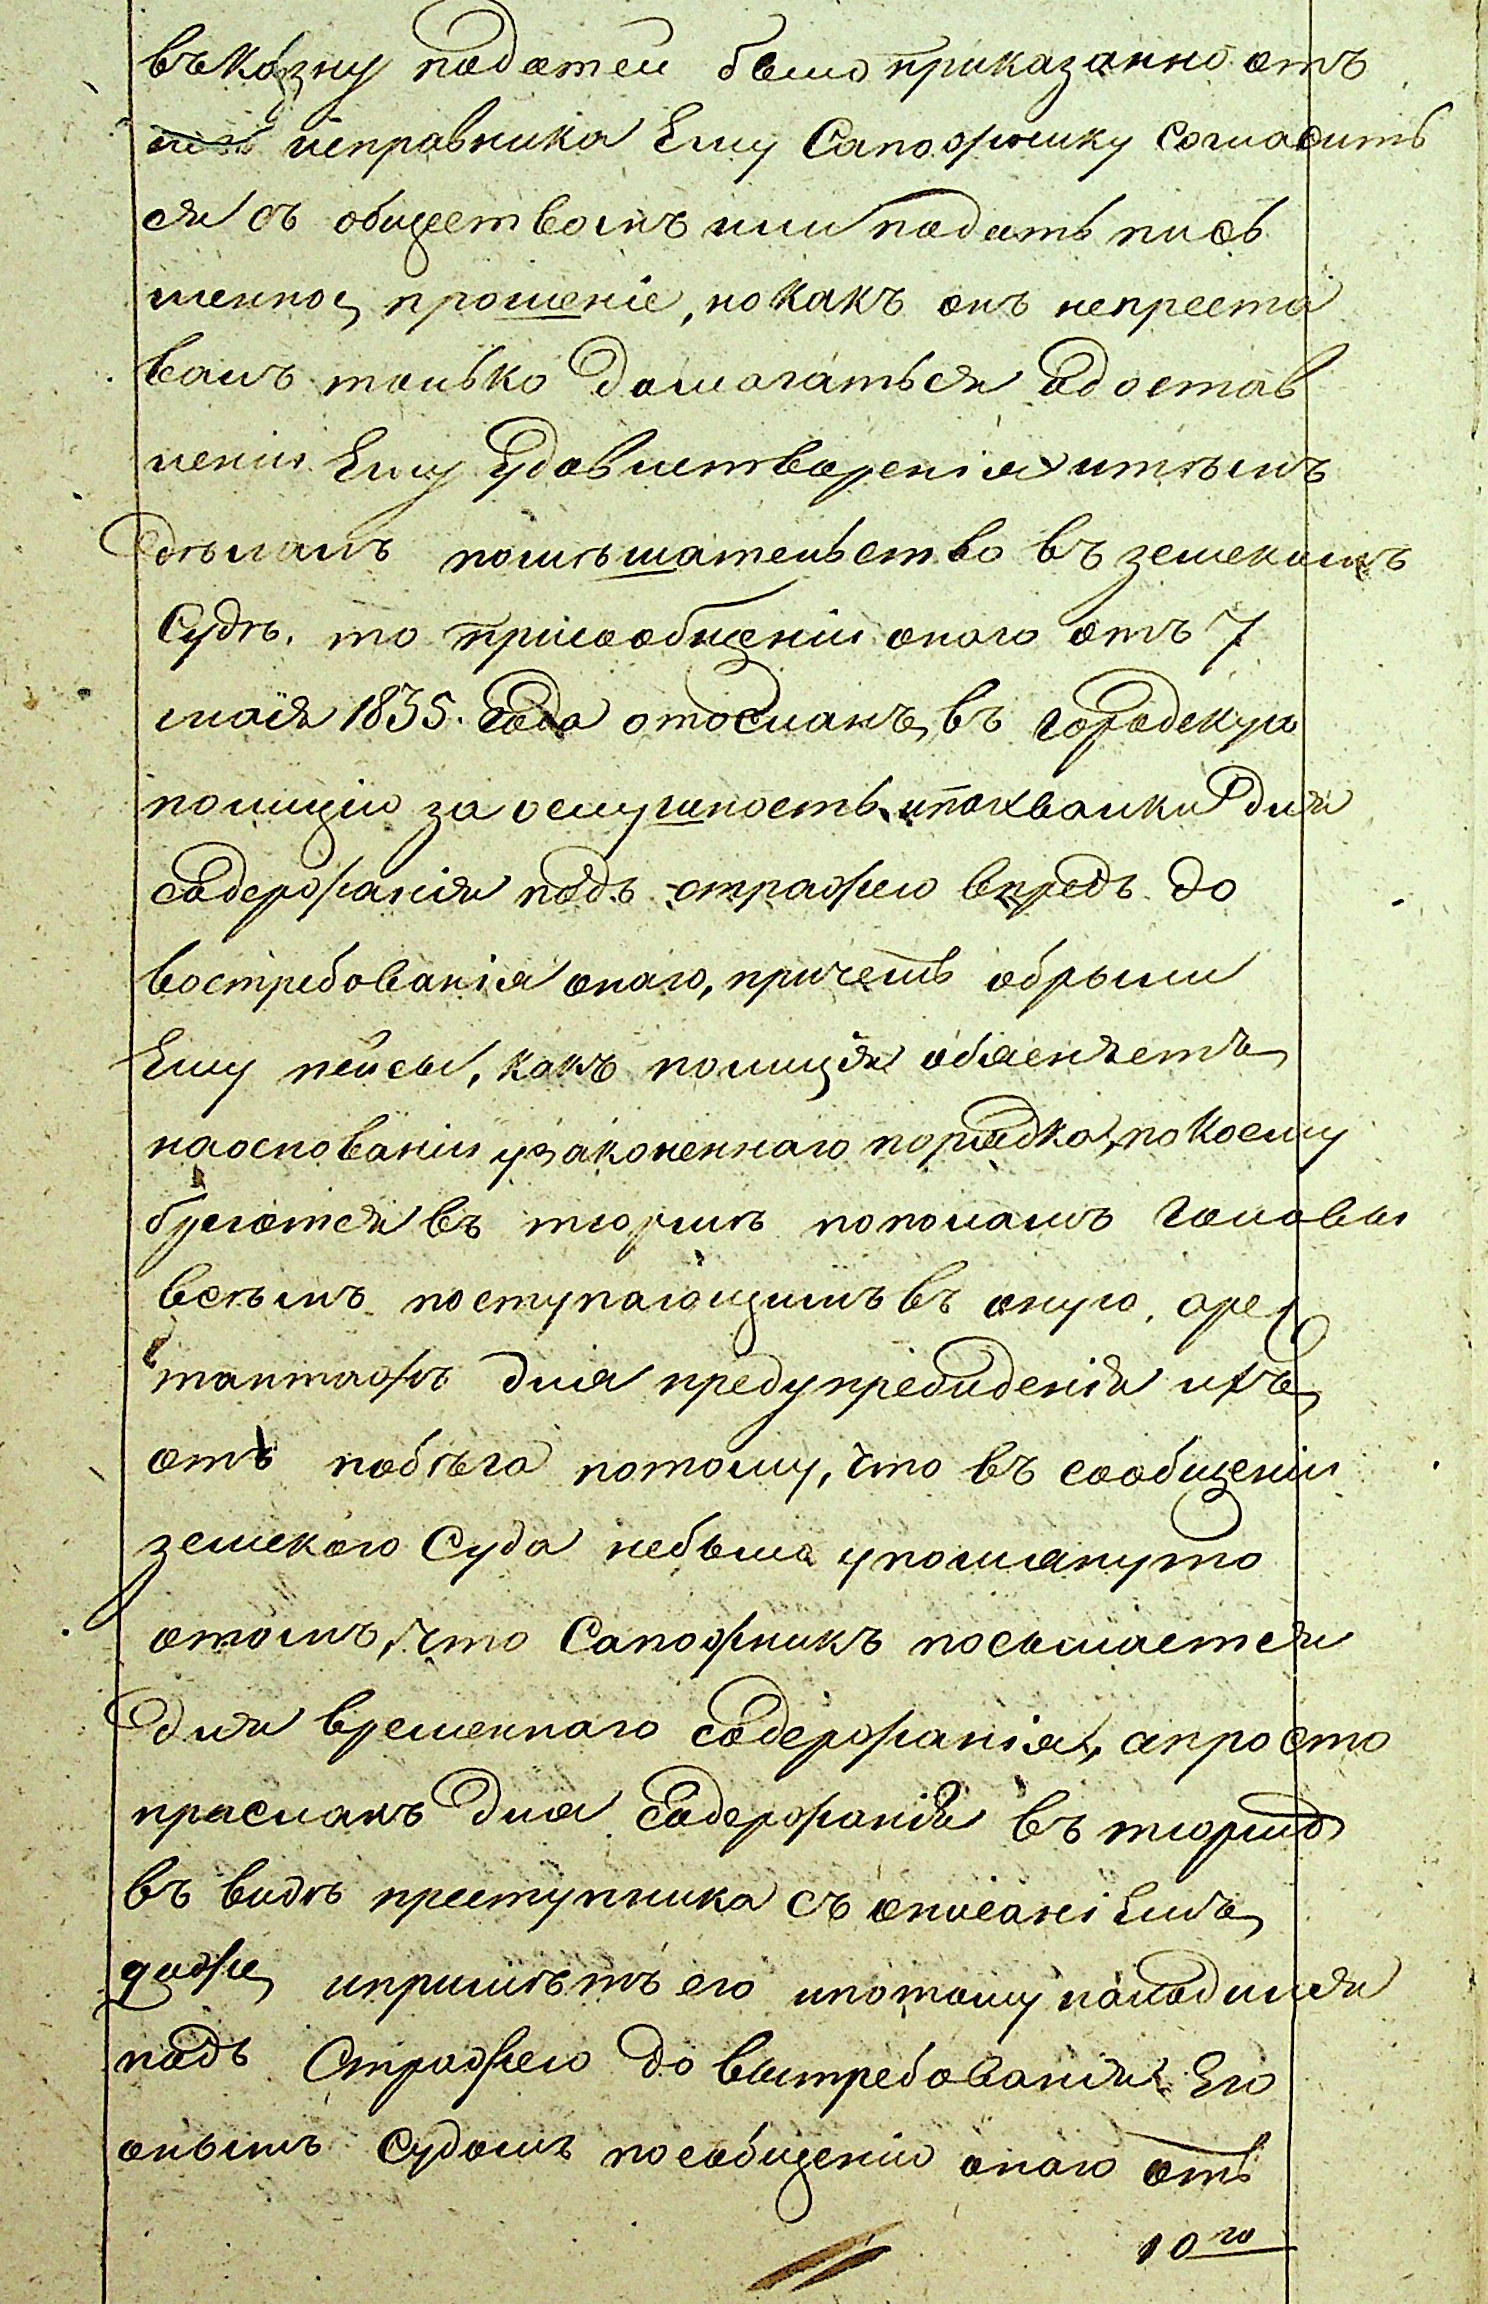 въ казну податей было приказанно отъ
исправника Ему Сапожнику согласить
ся съ обществомъ или подать пись
менное прошеніе, но какъ онъ непреста
валъ только домагаться о достав
леніи Ему удовлетворенія и тѣмъ
дѣлалъ помѣшательство въ земскомъ
Судѣ. то при сообщеніи онаго отъ 7
маія 1835. года отосланъ въ городскую
полицію за ослушность и похвалки для
содержанія подъ стражею впредь до
востребованія онаго, причемъ обрыли
Ему пейсы, какъ полиція обясняетъ
на основаніи узаконеннаго порядка, по коему
бреются въ тюрмѣ пополамъ головы
всѣмъ поступающимъ въ оную, арес
тантамъ для предупреждденія ихъ
отъ побѣга потому, что въ сообщеніи
земского Суда небыло упомянуто
отомъ, что Сапожникъ посылается
для временнаго содержанія, а просто
присланъ для содержанія въ тюрмѣ
въ видѣ преступника съ описаніемъ
даже и примѣтъ его и потому находился
подъ Стражею до вытребованія Его
онымъ Судомъ по сообщенію онаго отъ
10го